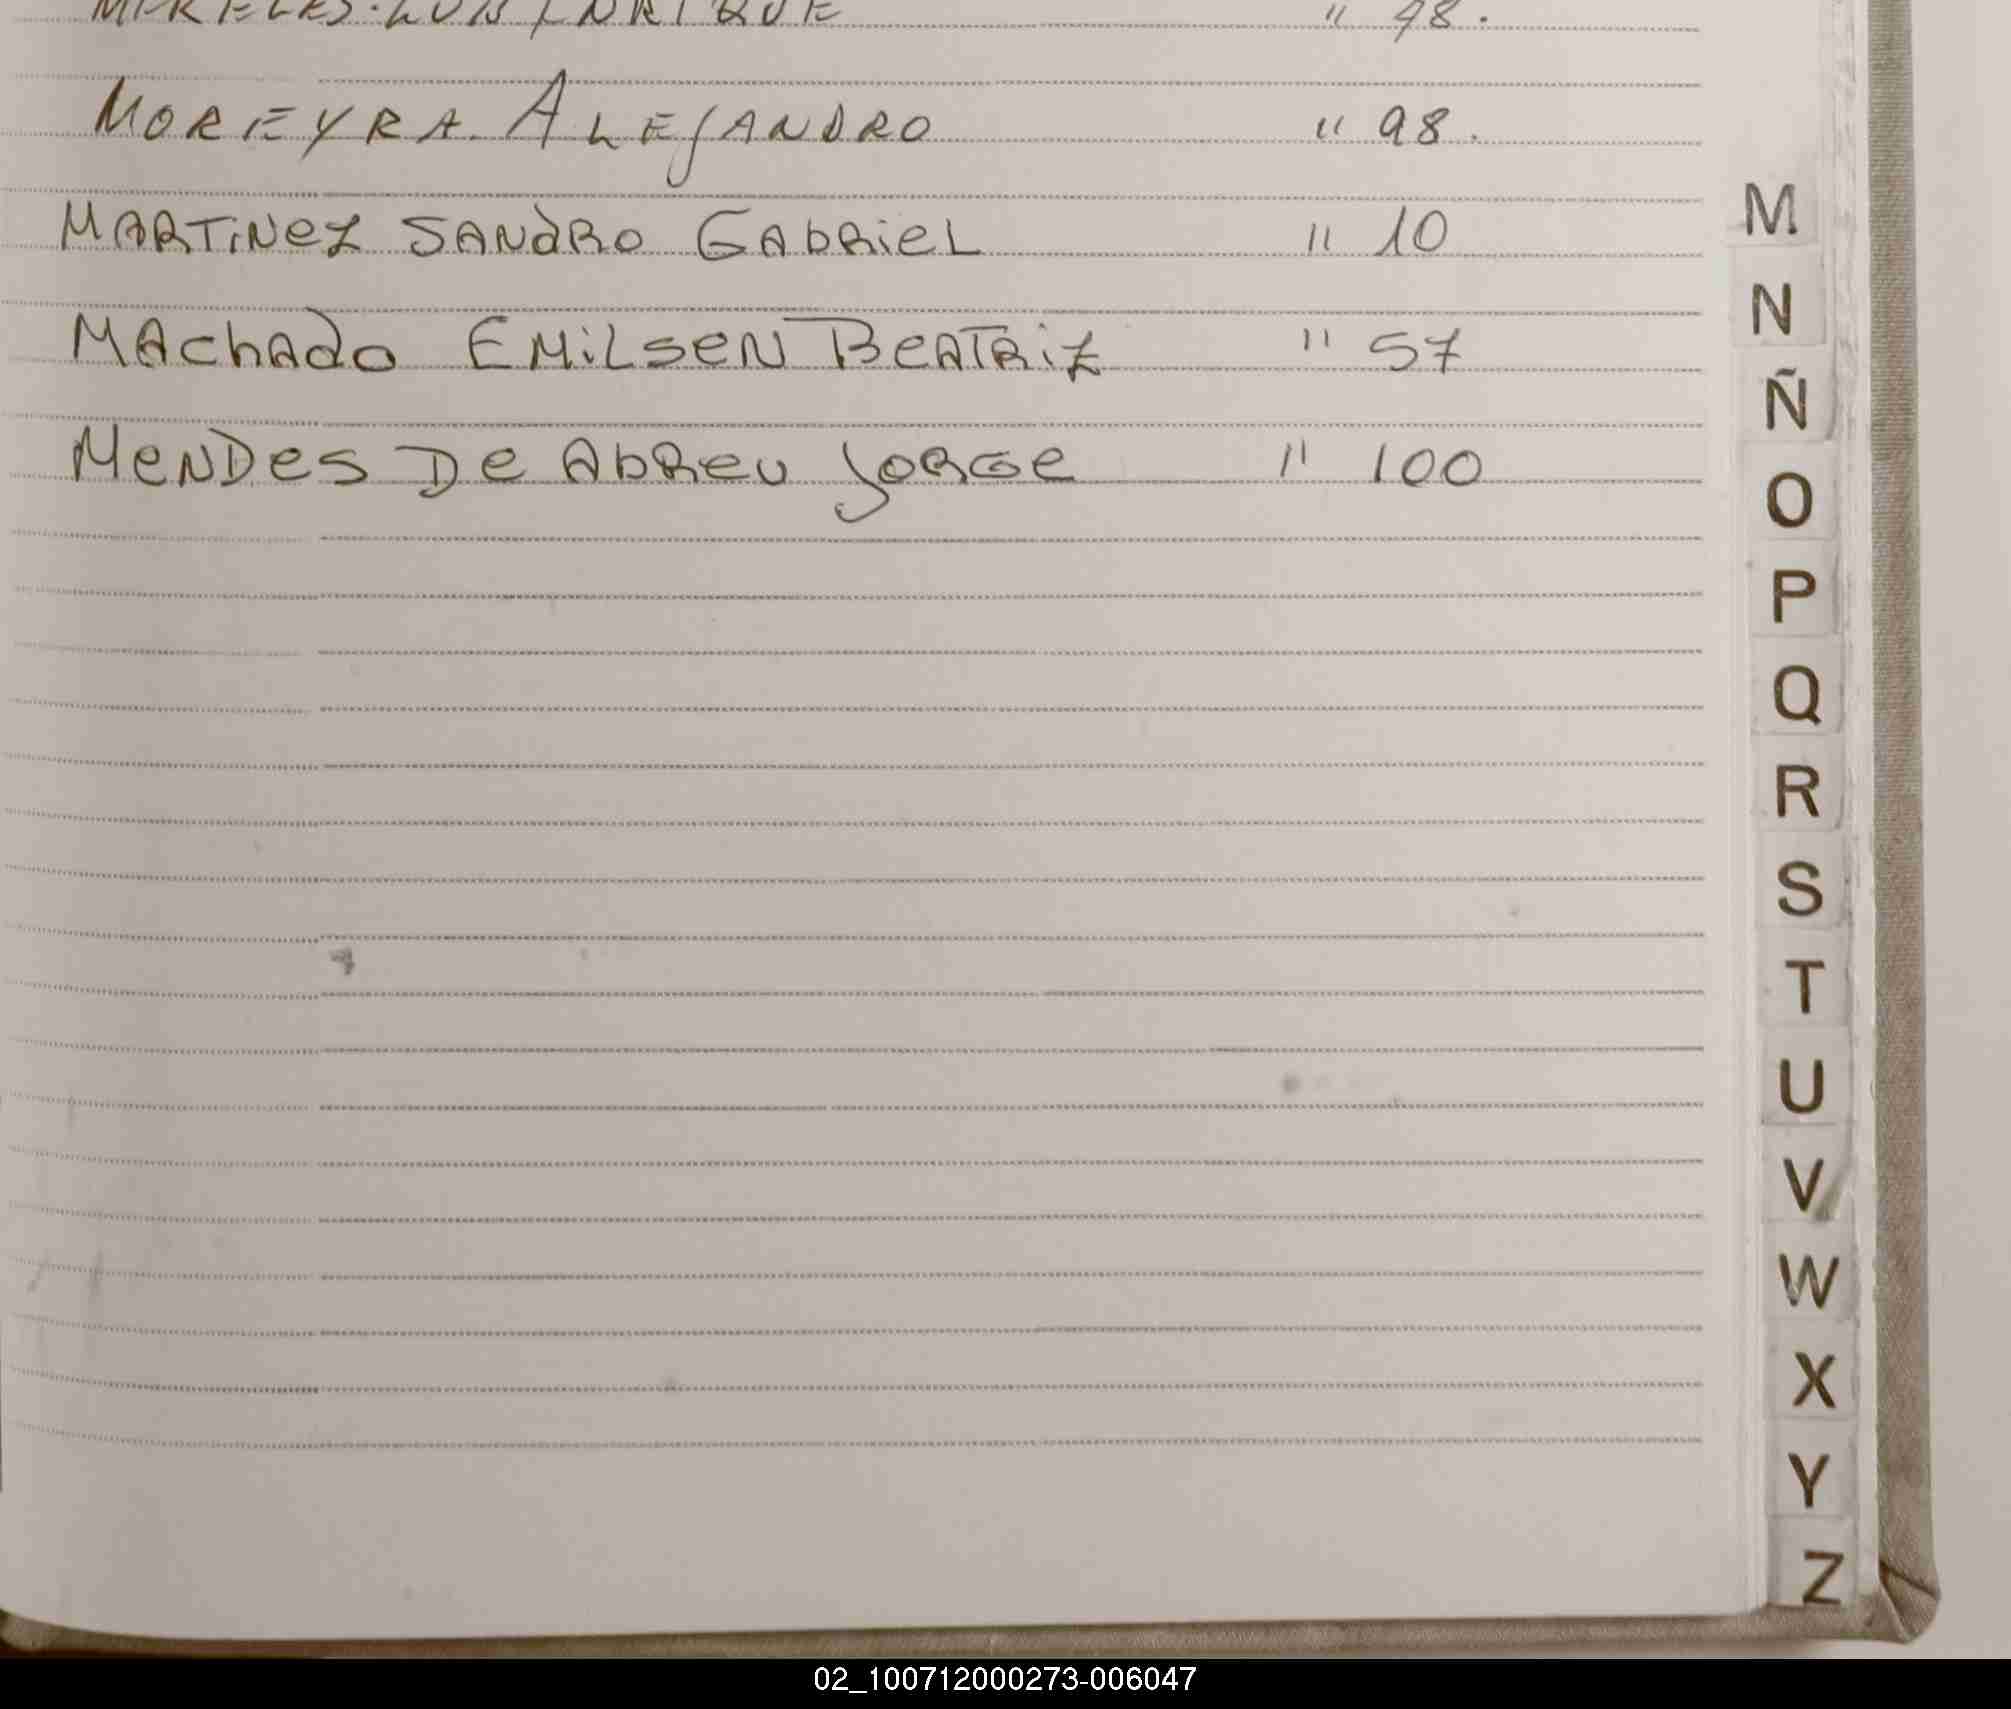 MIRELES. LUN ENRIQUE " 98.
MOREYRA. ALEJANDRO " 98.
MARTINEZ SANDRO GABRIEL " 10
MACHADO EMILSEN BEATRIZ " 57
MENDES DE ABREU JORGE " 100
M
N
Ñ
O
P
Q
R
S
T
U
V
W
X
Y
Z
02_100712000273-006047